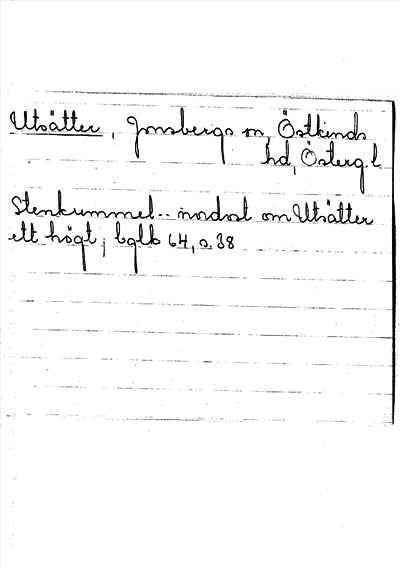 Utsätter, Jonsbergs sn, Östkinds
hd, Österg. l
Stenkummel.. nordost om Utsätter
ett högt; bglb 64, s. 38